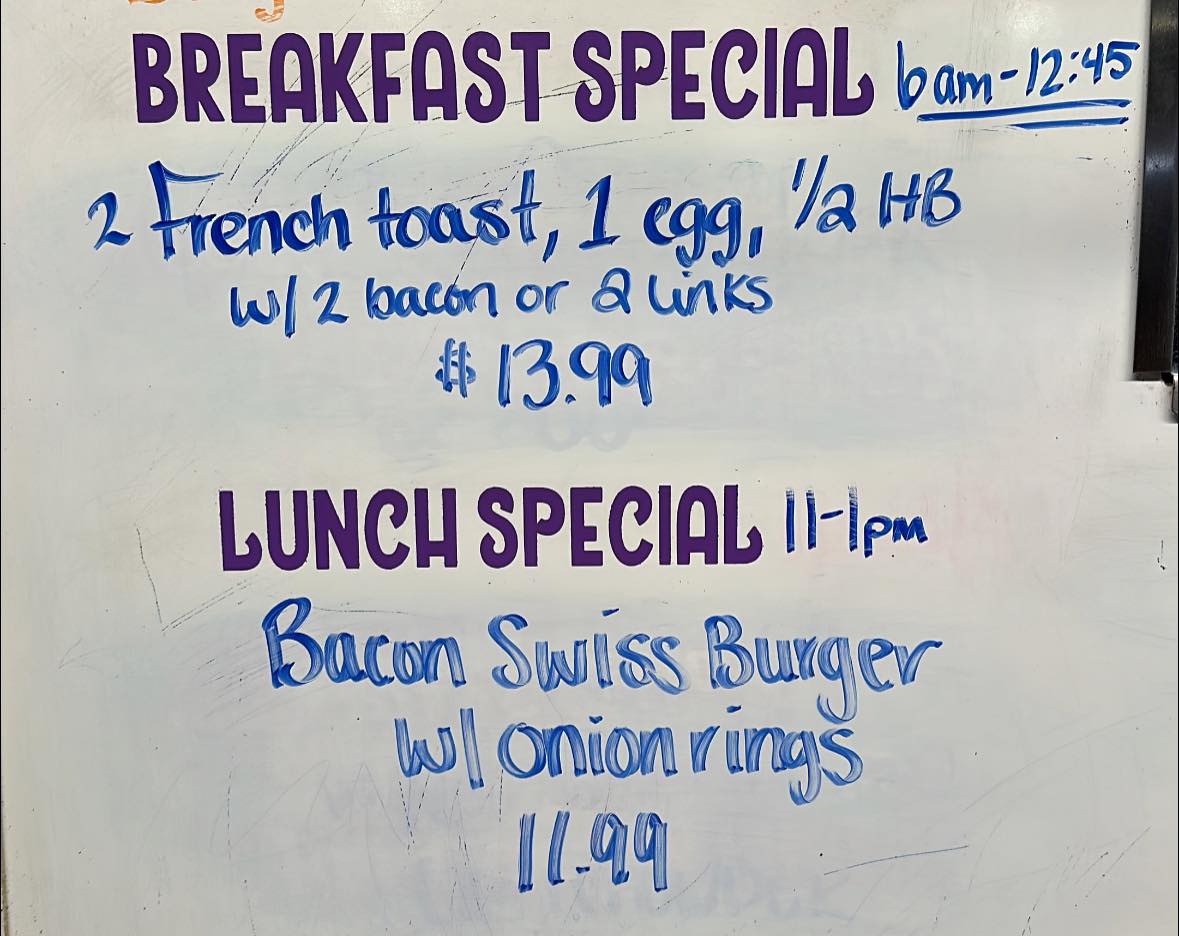 BREAKFAST SPECIAL 6am-12:45
2 French toast, 1 egg, 1/2 HB
w/ 2 bacon or 2 links
$13.99
LUNCH SPECIAL 11-1pm
Bacon Swiss Burger
w/ onion rings
11.99